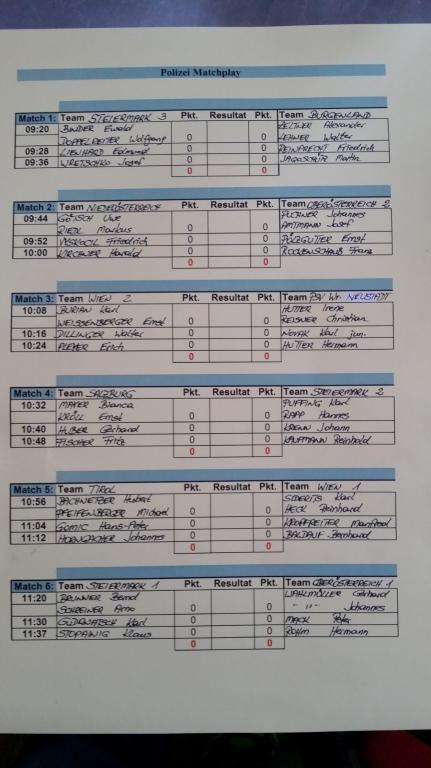 Polizei Matchplay
Match 1: Team STEIERMARK 3 Pkt. Resultat Pkt. Team BURGENLAND
09:20 BINDER Ewald ZELTNER Alexander
DOPPELREITER Wolfgang 0 0 LEHNER Walter
09:28 LIENHARD Edmund 0 0 REINPRECHT Friedrich
09:36 WRETSCHKO Josef 0 0 JAGASCHÜTZ Martin
0 0
Match 2: Team NIEDERÖSTERREICH Pkt. Resultat Pkt. Team OBERÖSTERREICH 2
09:44 GÖTSCH Uwe PUCHNER Johannes
RIEDL Markus 0 0 AMTMANN Josef
09:52 Friedrich 0 0 PÖLZGUTTER Ernst
10:00 KIRCHNER Harald 0 0 ROCKENSCHAUB Franz
0 0
Match 3: Team WIEN 2 Pkt. Resultat Pkt. Team PSV Wr. NEUSTADT
10:08 BURIAN Karl HUTTER Irene
WEISSENBERGER Ernst 0 0 REISNER Christian
10:16 DILLINGER Walter 0 0 NOVAK Karl jun.
10:24 PLEYER Erich 0 0 HUTTER Hermann
0 0
Match 4: Team SALZBURG Pkt. Resultat Pkt. Team STEIERMARK 2
10:32 MAYER Bianca PUFFING Karl
KRÖLL Ernst 0 0 RAPP Hannes
10:40 HUBER Gerhard 0 0 KRENN Johann
10:48 FISCHER Fritz 0 0 KAUFMANN Reinhold
0 0
Match 5: Team TIROL Pkt. Resultat Pkt. Team WIEN 1
10:56 BACHNETZER Hubert SIDERITS Karl
PFEIFENBERGER Michael 0 0 HECK Reinhard
11:04 GOMIG Hans-Peter 0 0 KROPFREITER Manfred
11:12 HORNGACHER Johannes 0 0 BALDAUF Bernhard
0 0
Match 6: Team STEIERMARK 1 Pkt. Resultat Pkt. Team OBERÖSTERREICH 1
11:20 BRUNNER Bernd WAHLMÜLLER Gerhard
SCHREINER Arno 0 0 -"- Johannes
11:30 GUDRNATSCH Karl 0 0 MACK Peter
11:37 Klaus 0 0 ROHM Hermann
0 0